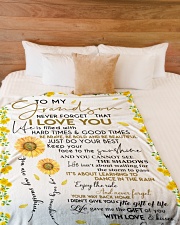 TO MY
Grandson
NEVER FORGET THAT
I LOVE YOU
Life is filled with
HARD TIMES & GOOD TIMES
BE BRAVE, BE BOLD AND BE BEAUTIFUL
JUST DO YOUR BEST
Keep your
face to the sunshine
AND YOU CANNOT SEE
THE SHADOWS
Life isn't about waiting for
the storm to pass
IT'S ABOUT LEARNING TO
DANCE IN THE RAIN
Enjoy the ride
And never forget
YOUR WAY BACK HOME
I DIDN'T GIVE YOU The gift of life
Life gave me the GIFT OF YOU
WITH LOVE